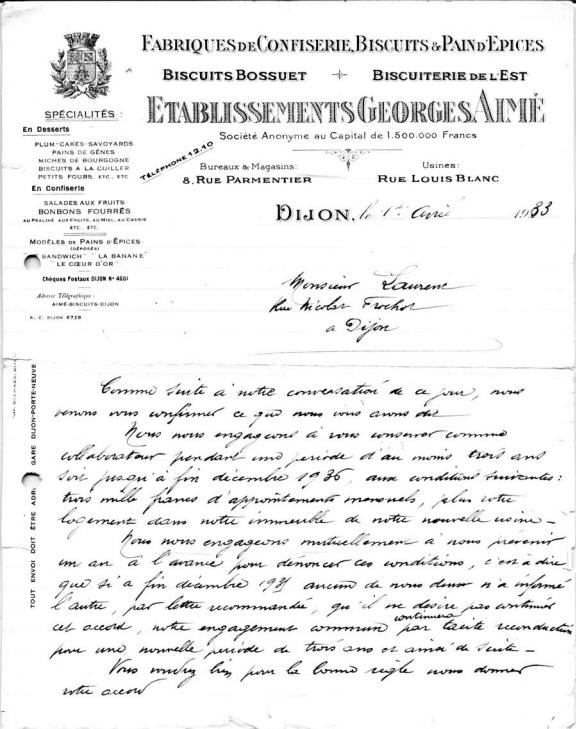 FABRIQUES DE CONFISERIE, BISCUITS & PAIN D'EPICES
BISCUITS BOSSUET
BISCUITERIE DE L'EST
ETABLISSEMENTS GEORGES AIMÉ
Société Anonyme au Capital de 1.500.000 Francs
TÉLÉPHONE 12.10
Bureaux & Magasins:
8, RUE PARMENTIER
Usines:
RUE LOUIS BLANC
SPÉCIALITÉS:
En Desserts
PLUM-CAKES-SAVOYARDS
PAINS DE GÊNES
MICHES DE BOURGOGNE
BISCUITS A LA CUILLER
PETITS FOURS, ETC., ETC
En Confiserie
SALADES AUX FRUITS
BONBONS FOURRÉS
AU PRALINÉ AUX FRUITS, AU MIEL, AU CASSIS
ETC., ETC.
MODÈLES DE PAINS D'ÉPICES
(DÉPOSÉS)
SANDWICH" "LA BANANE"
"LE CŒUR D'OR"
Chèques Postaux DIJON N° 4601
Adresse Télégraphique:
AIMÉ-BISCUITS-DIJON
R. C. DIJON 6729
DIJON, le 1er Avril 1933
Monsieur Laurent
Rue Nicolas Frochot
a Dijon
TOUT ENVOI DOIT ÊTRE ADR GARE DIJON-PORTE-NEUVE
Comme suite à notre conversation de ce jour, nous
venons vous confirmer ce que nous vous avons dit
Nous nous engageons à vous conserver comme
collaborateur pendant une période d'au moins trois ans
soit jusqu'à fin décembre 1936, aux conditions suivantes:
trois mille francs d'appointements mensuels, plus votre
logement dans notre immeuble de notre nouvelle usine -
Nous nous engageons mutuellement à nous prévenir
un an à l'avance pour dénoncer ces conditions, c'est à dire
que si à fin décembre aucun de nous deux n'a informé
l'autre, par lettre recommandée, qu'il ne désire pas continuer
cet accord, notre engagement commun continuera par tacite reconduction
pour une nouvelle période de trois ans et ainsi de suite -
Vous voudrez bien pour la bonne règle nous donner
votre accord